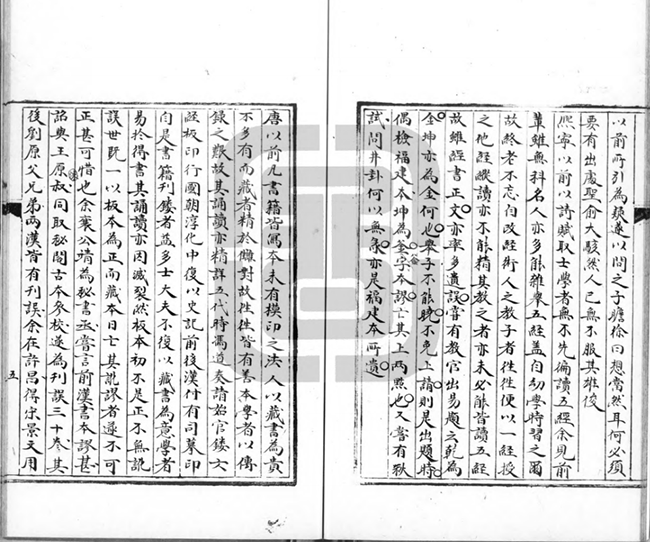 以前所引為疑遂以問之子瞻徐曰想當然耳何必須
要有出處聖俞大駭然人已無不服其雄俊
熙寧以前以詩賦取士學者無不先徧讀五經余見前
輩雖無科名人亦多能雜舉五經蓋自幼學時習之爾
故終老不忘自改經術人之教子者徃徃便以一經授
之他經縱讀亦不能精其教之者亦未必能皆讀五經
故雖經書正文亦率多遺誤嘗有教官出易題云乾為
金坤亦為金何也舉子不能曉不免上請則是出題時
偶檢福建本坤為釜字本謬亡其上兩點也又嘗有秋
試問井卦何以無彖亦是福建本所遺
唐以前凡書籍皆寫本未有模印之法人以藏書為貴
不多有而藏者精於讎對故徃徃皆有善本學者以傳
錄之艱故其誦讀亦精詳五代時馮道奏請始官鏤六
經板印行國朝淳化中復以史記前後漢付有司摹印
自是書籍刊鏤者益多士大夫不復以藏書為意學者
易於得書其誦讀亦因滅裂然板本初不是正不無訛
誤世既一以板本為正而藏本日亡其訛謬者遂不可
正甚可惜也余襄公靖為秘書丞嘗言前漢書本謬甚
詔與王原叔同取秘閣古本參校遂為刊誤三十卷其
後劉原父兄弟兩漢皆有刊誤余在許昌得宋景文用
五